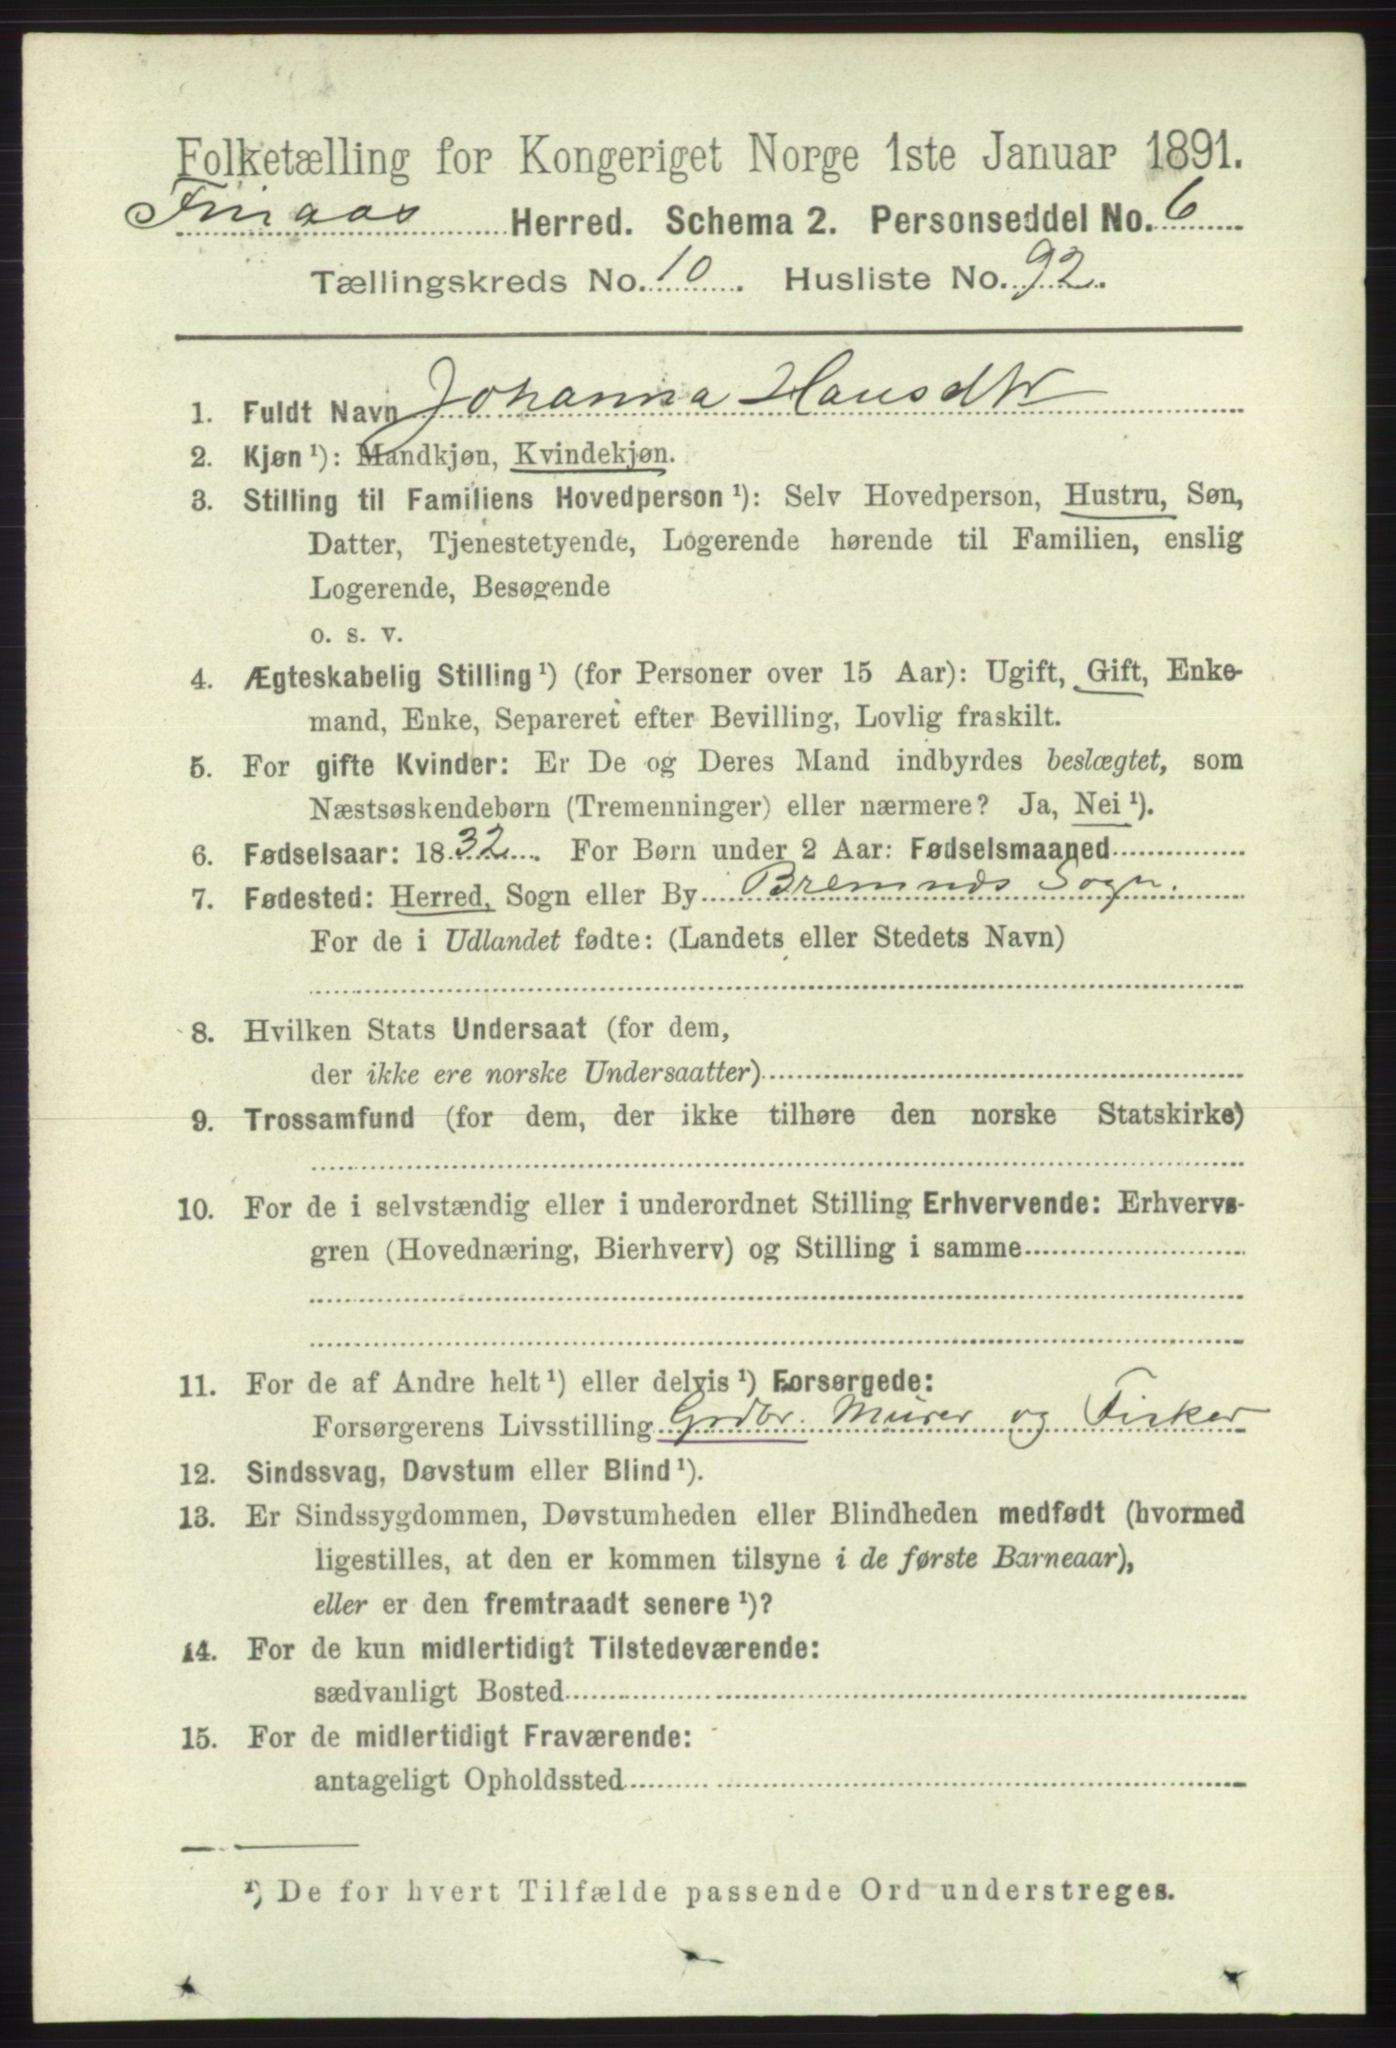 Folketælling for Kongeriget Norge 1ste Januar 1891.
Finaas Herred. Schema 2. Personseddel No. 6
Tællingskreds No. 10. Husliste No. 92.
1. Fuldt Navn Johanna Hansdtr
2. Kjøn ¹): Mandkjøn, Kvindekjøn.
3. Stilling til Familiens Hovedperson ¹): Selv Hovedperson, Hustru, Søn,
Datter, Tjenestetyende, Logerende hørende til Familien, enslig
Logerende, Besøgende
o. s. v.
4. Ægteskabelig Stilling ¹) (for Personer over 15 Aar): Ugift, Gift, Enke-
mand, Enke, Separeret efter Bevilling, Lovlig fraskilt.
5. For gifte Kvinder: Er De og Deres Mand indbyrdes beslægtet, som
Næstsøskendebørn (Tremenninger) eller nærmere? Ja, Nei ¹).
6. Fødselsaar: 1832. For Børn under 2 Aar: Fødselsmaaned
7. Fødested: Herred, Sogn eller By Bremnds Sogn.
For de i Udlandet fødte: (Landets eller Stedets Navn)
8. Hvilken Stats Undersaat (for dem,
der ikke ere norske Undersaatter)
9. Trossamfund (for dem, der ikke tilhøre den norske Statskirke)
10. For de i selvstændig eller i underordnet Stilling Erhvervende: Erhvervs-
gren (Hovednæring, Bierhverv) og Stilling i samme
11. For de af Andre helt ¹) eller delvis ¹) Forsørgede:
Forsørgerens Livsstilling Grdbr. Murer og Fisker
12. Sindssvag, Døvstum eller Blind ¹).
13. Er Sindssygdommen, Døvstumheden eller Blindheden medfødt (hvormed
ligestilles, at den er kommen tilsyne i de første Barneaar),
eller er den fremtraadt senere ¹)?
14. For de kun midlertidigt Tilstedeværende:
sædvanligt Bosted
15. For de midlertidigt Fraværende:
antageligt Opholdssted
¹) De for hvert Tilfælde passende Ord understreges.